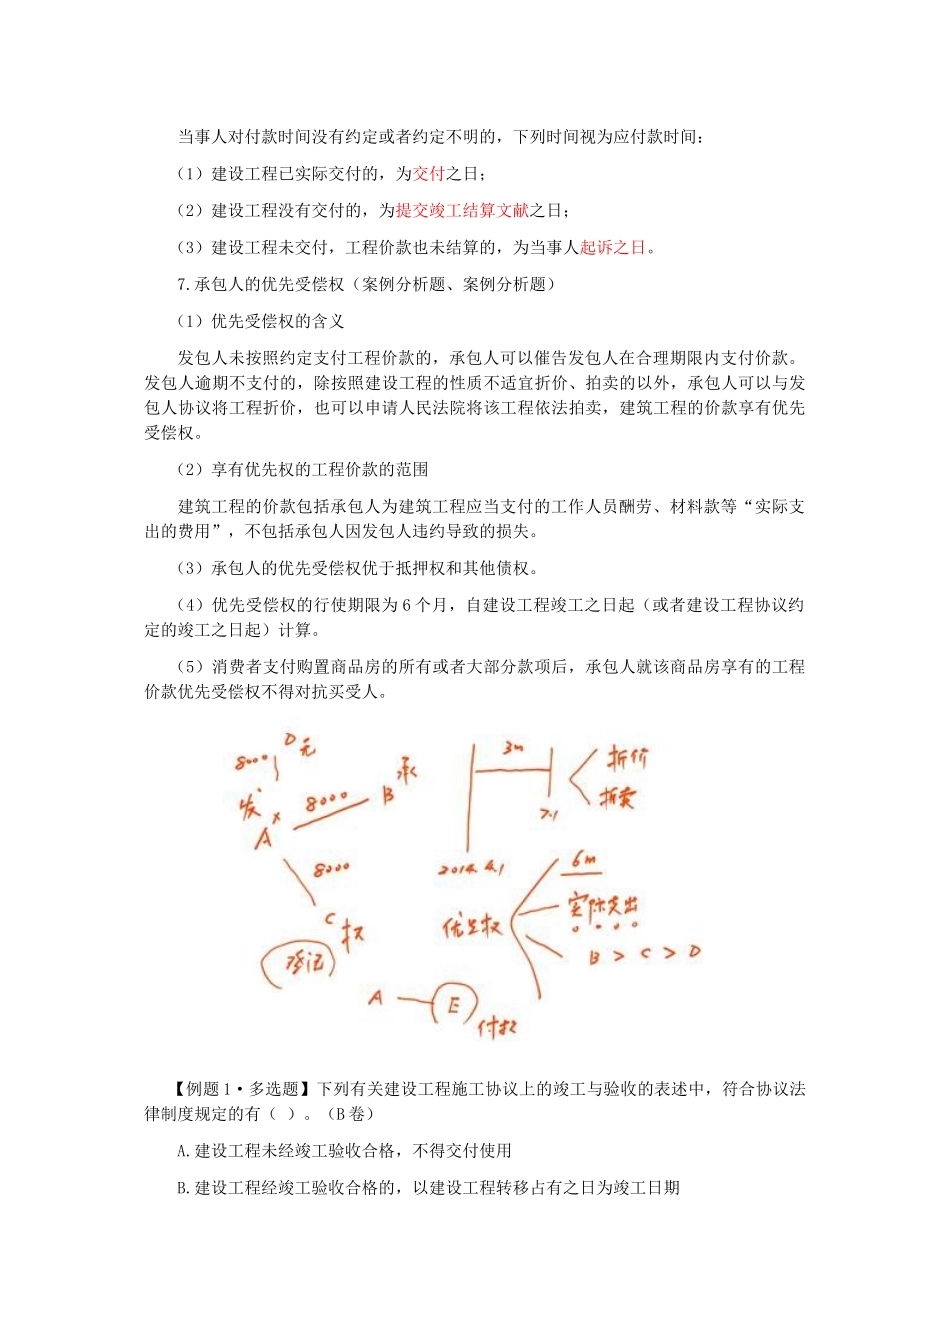 当事人对付款时间没有约定或者约定不明的，下列时间视为应付款时间：
（1）建设工程已实际交付的，为交付之日；
（2）建设工程没有交付的，为提交竣工结算文献之日；
（3）建设工程未交付，工程价款也未结算的，为当事人起诉之日。
7.承包人的优先受偿权（案例分析题、案例分析题）
（1）优先受偿权的含义
发包人未按照约定支付工程价款的，承包人可以催告发包人在合理期限内支付价款。
发包人逾期不支付的，除按照建设工程的性质不适宜折价、拍卖的以外，承包人可以与发
包人协议将工程折价，也可以申请人民法院将该工程依法拍卖，建筑工程的价款享有优先
受偿权。
（2）享有优先权的工程价款的范围
建筑工程的价款包括承包人为建筑工程应当支付的工作人员酬劳、材料款等“实际支
出的费用”，不包括承包人因发包人违约导致的损失。
（3）承包人的优先受偿权优于抵押权和其他债权。
（4）优先受偿权的行使期限为 6 个月，自建设工程竣工之日起（或者建设工程协议约
定的竣工之日起）计算。
（5）消费者支付购置商品房的所有或者大部分款项后，承包人就该商品房享有的工程
价款优先受偿权不得对抗买受人。
8000 D 无
发 A 8000 B 承
3m
折价
7.1
8000
2014.4.1
6m
C
优先权
实际支出
登记
B > C > D
A E
付款
【例题 1·多选题】下列有关建设工程施工协议上的竣工与验收的表述中，符合协议法
律制度规定的有（ ）。（B 卷）
A.建设工程未经竣工验收合格，不得交付使用
B.建设工程经竣工验收合格的，以建设工程转移占有之日为竣工日期